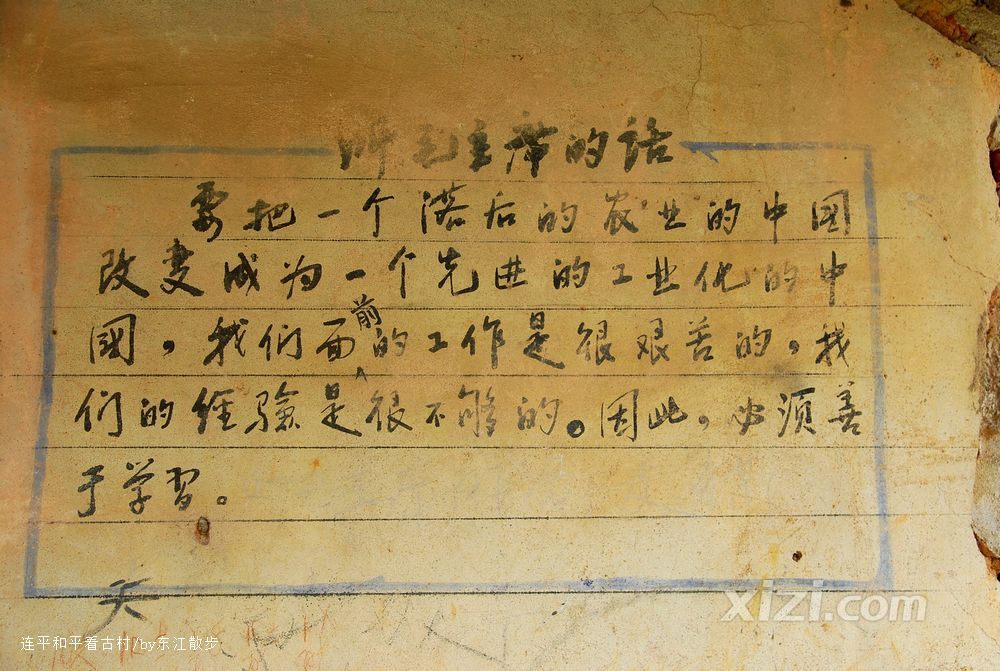 听毛主席的话
要把一个落后的农业的中国
改变成为一个先进的工业化的中
國，我们面前的工作是很艰苦的，我
们的经驗是很不够的。因此，必须善
于学習。
天
连平和平看古村/by东江散步
xizi.com